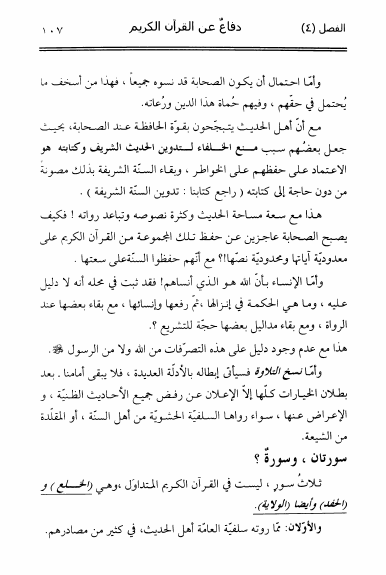 الفصل (٤) دفاعٌ عن القرآن الكريم ١٠٧
وأمّا احتمال أن يكون الصحابة قد نسوه جميعاً ، فهذا من أسخف ما
يُحتمل في حقّهم ، وفيهم حُماة هذا الدين ورُعاته.
مع أنّ أهل الحديث يتبجّحون بقوّة الحافظة عند الصحابة، بحيث
جعل بعضُهم سبب منع الخلفاء لتدوين الحديث الشريف وكتابته هو
الاعتماد على حفظهم على الخواطر ، وبقاء السنّة الشريفة بذلك مصونةً
من دون حاجة إلى كتابته ( راجع كتابنا : تدوين السنّة الشريفة ) .
هذا مع سعة مساحة الحديث وكثرة نصوصه وتباعد رواته ! فكيف
يصبح الصحابة عاجزين عن حفظ تلك المجموعة من القرآن الكريم على
معدوديّة آياتها ومحدوديّة نصّها!؟ مع أنّهم حفظوا السُنّة على سعتها .
وأمّا الإنساء بأنّ الله هو الذي أنساهم! فقد ثبت في محله أنه لا دليل
عليه ، وما هي الحكمة في إنزالها ،ثمّ رفعها وإنسائها ، مع بقاء بعضها عند
الرواة ، ومع بقاء مداليل بعضها حجّة للتشريع ؟.
هذا مع عدم وجود دليل على هذه التصرّفات من الله ولا من الرسول ﷺ.
وأمّا نسخ التلاوة فسيأتي إبطاله بالأدلّة العديدة ، فلا يبقى أمامنا . بعد
بطلان الخيارات كلّها إلاّ الإعلان عن رفض جميع الأحاديث الظنيّة ، و
الإعراض عنها ، سواء رواها السلفيّة الحشويّة من أهل السنّة ، أو المقلّدة
من الشيعة.
سورتان ، وسورةٌ ؟
ثلاثُ سورٍ ، ليست في القرآن الكريم المتداوَل ،وهي (الخلع ) و
(الحفد) وأيضا (الولاية).
والأوّلان: ممّا روته سلفيّة العامّة أهل الحديث، في كثير من مصادرهم.